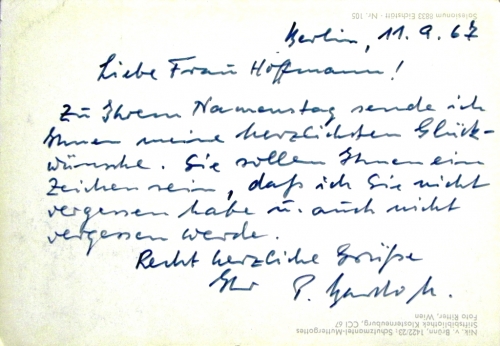 Salesianum 8833 Eichstätt - Nr. 105
Berlin, 11.9.67
Liebe Frau Hoffmann!
Zu Ihrem Namenstag sende ich
Ihnen meine herzlichsten Glück-
wünsche. Sie sollen Ihnen ein
Zeichen sein, daß ich Sie nicht
vergessen habe u. auch nicht
vergessen werde.
Recht herzliche Grüße
Ihr P.
Nik. v. Brünn, 1422/23: Schutzmantel-Muttergottes
Stiftsbibliothek Klosterneuburg, CCl 67
Foto Ritter, Wien